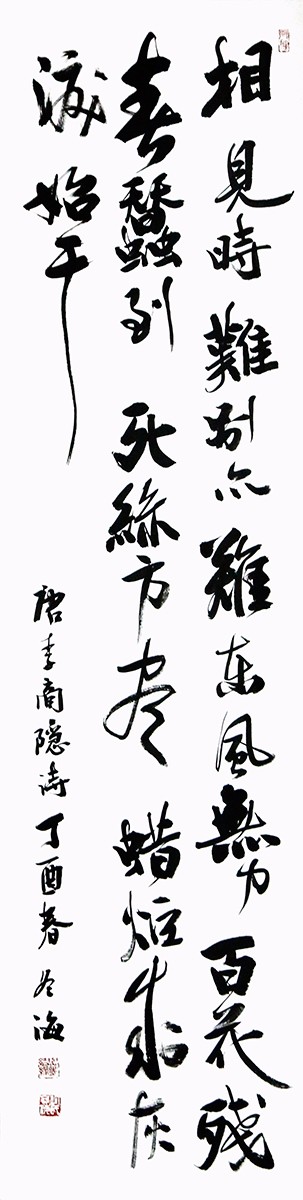 相見時難別亦難東風無力百花残
春蠶到死絲方尽蜡炬成灰
淚始干
唐李商隐诗丁酉春海